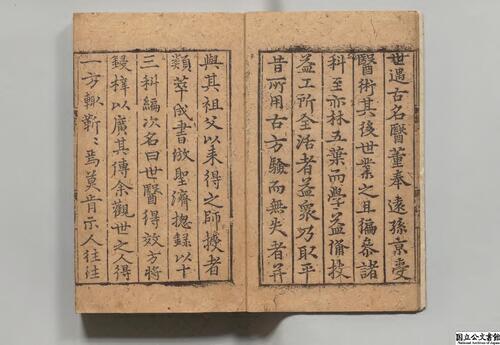 世遇古名醫董奉遠孫京受
醫術其後世業之且徧參諸
科至亦林五葉而學益備技
益工所全活者益衆乃取平
昔所用古方驗而無失者并
與其祖父以來得之師授者
類萃成書倣聖濟揔錄以十
三科編次名曰世醫得效方將
鋟梓以廣其傳余觀世之人得
一方輒靳〻焉莫肯示人往往
国立公文書館
National Archives of Japan